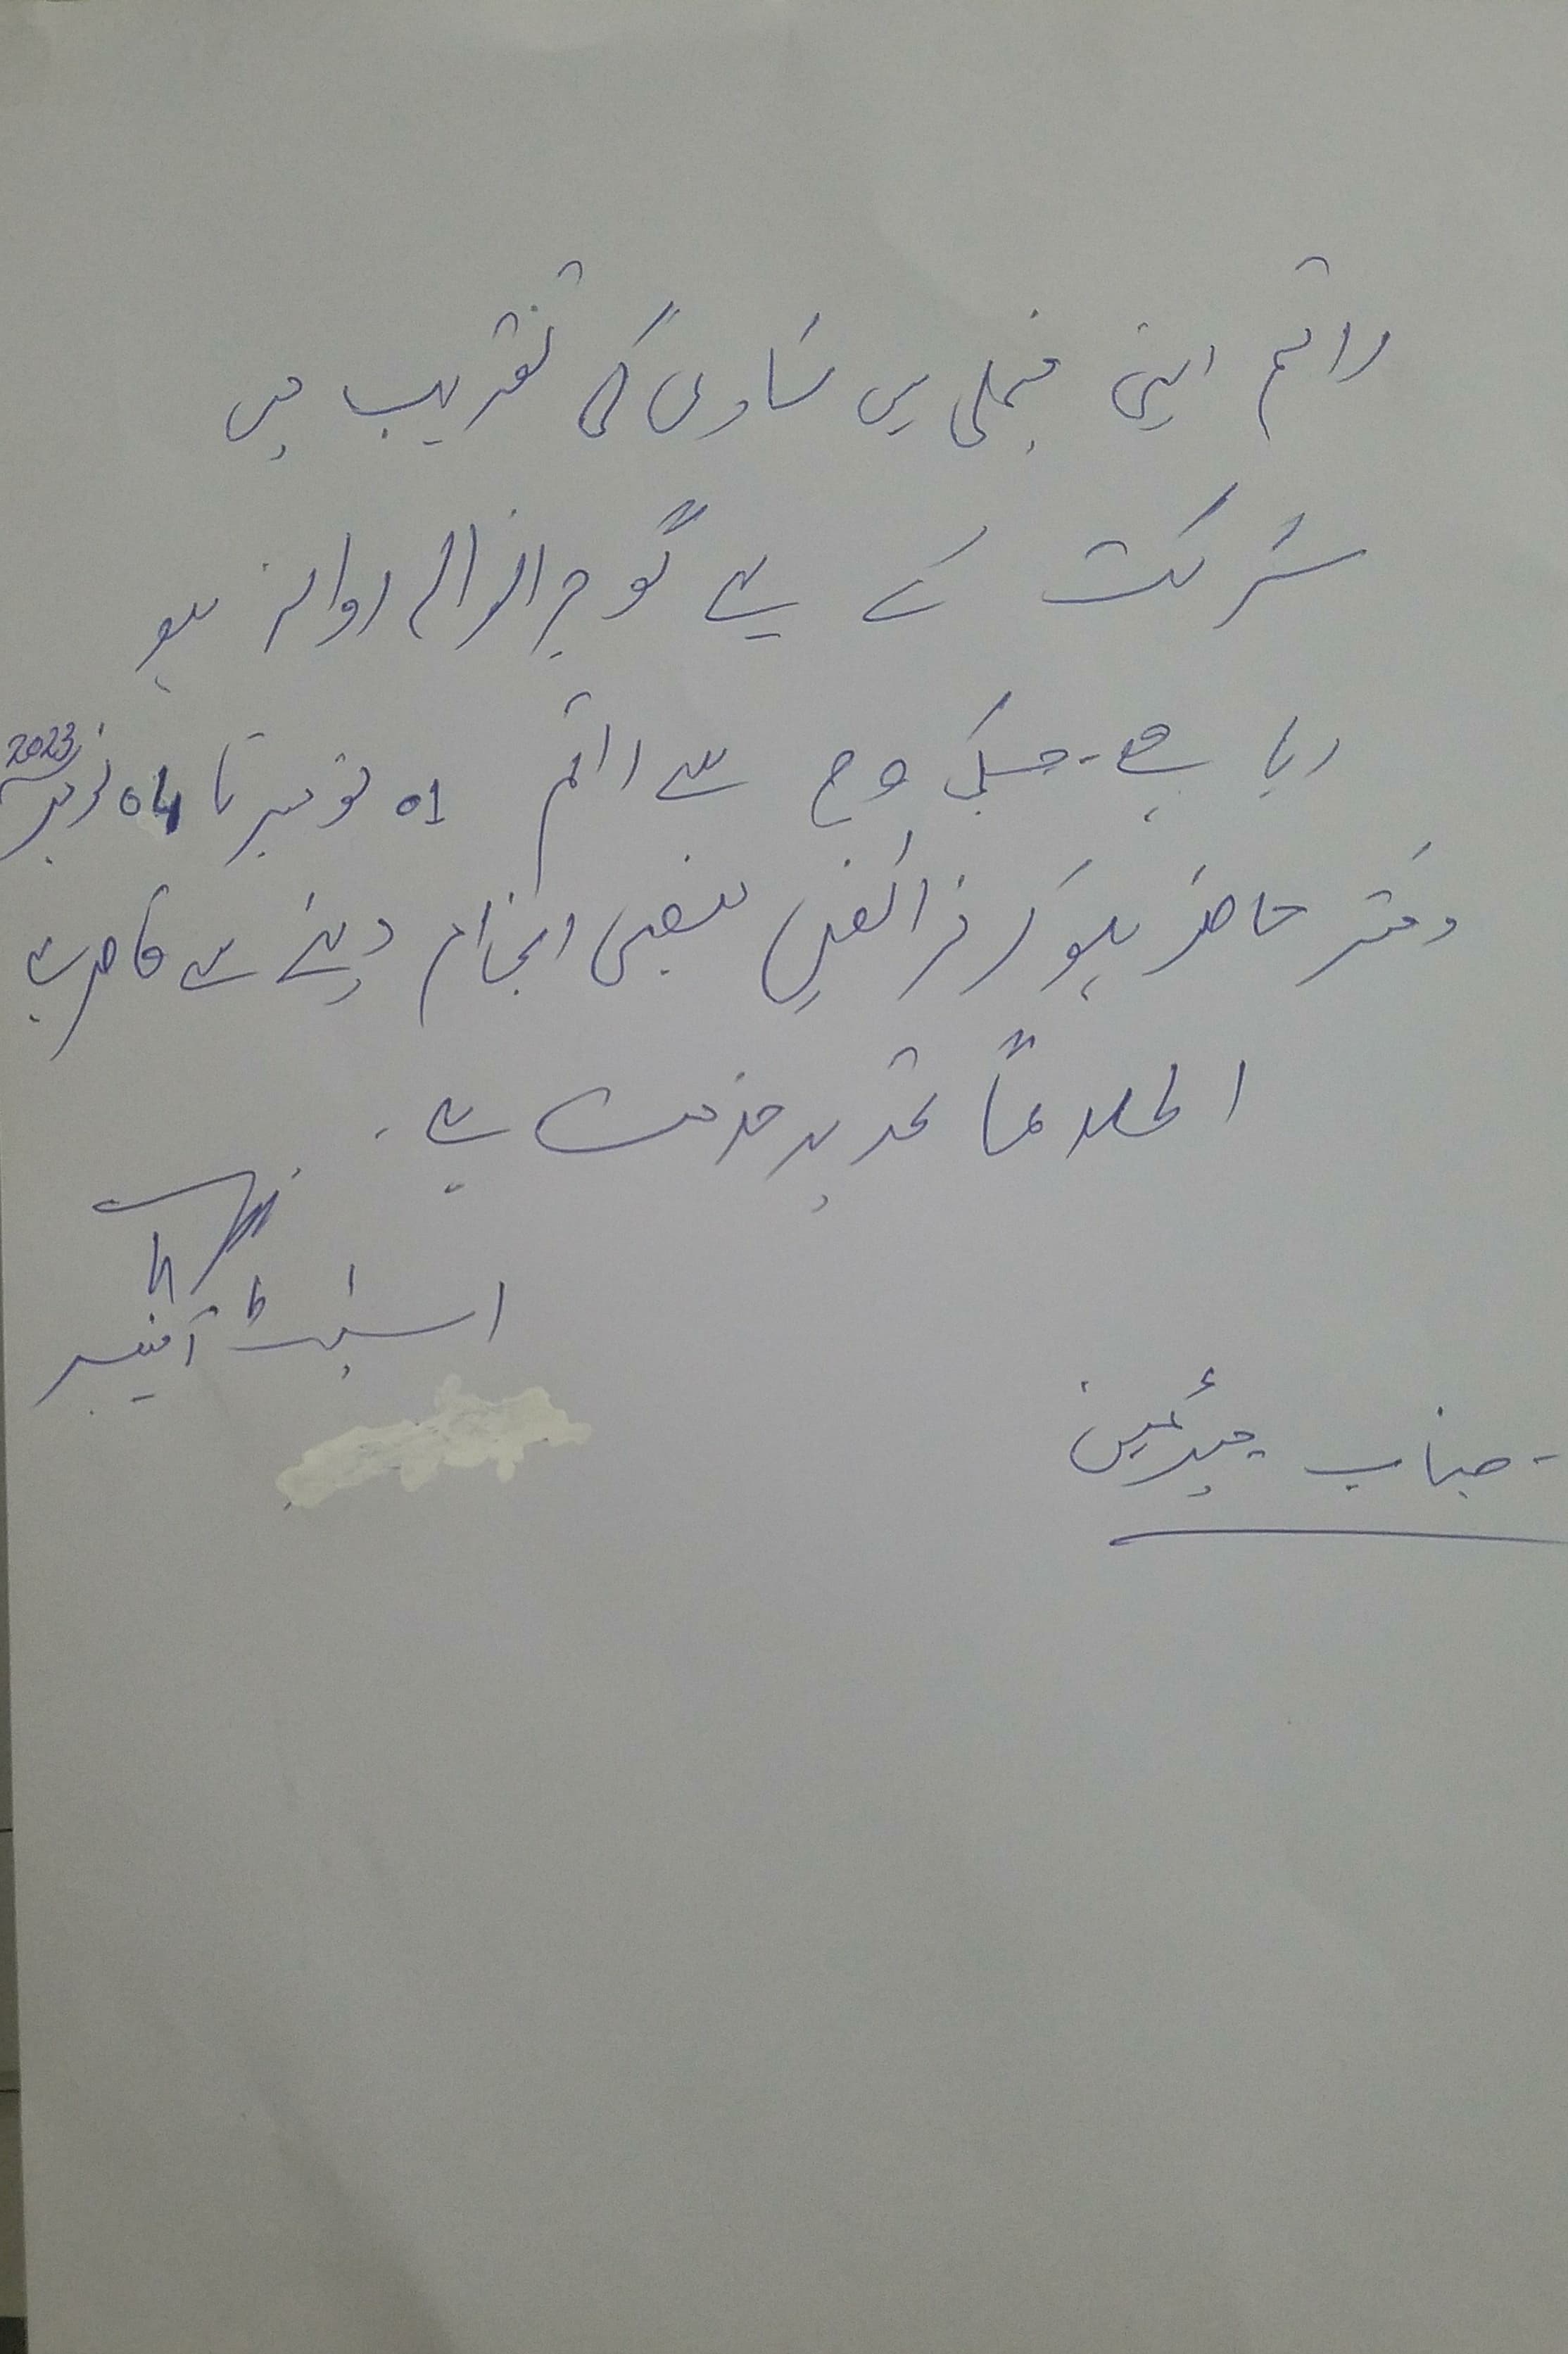 راقم اپنی فیملی میں شادی کی تقریب میں
شرکت کے لیے گوجرانوالہ روانہ ہو
رہا ہے۔ جسکی وجہ سے راقم 01 نومبر تا 04 نومبر 2023
دفتر حاضر ہوکر فرائض منصبی انجام دینے سے قاصر ہے
اطلاعاً تحریر خدمت ہے۔
اسٹیٹ آفیسر
جناب چیئرمین